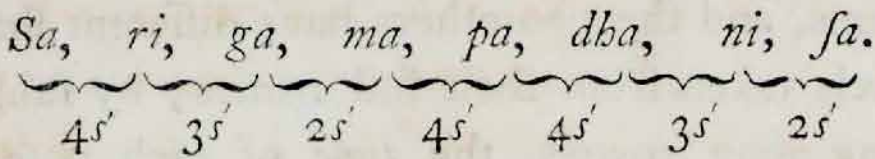 Sa, ri, ga, ma, pa, dha, ni, ſa.
4s′ 3s′ 2s′ 4s′ 4s′ 3s′ 2s′